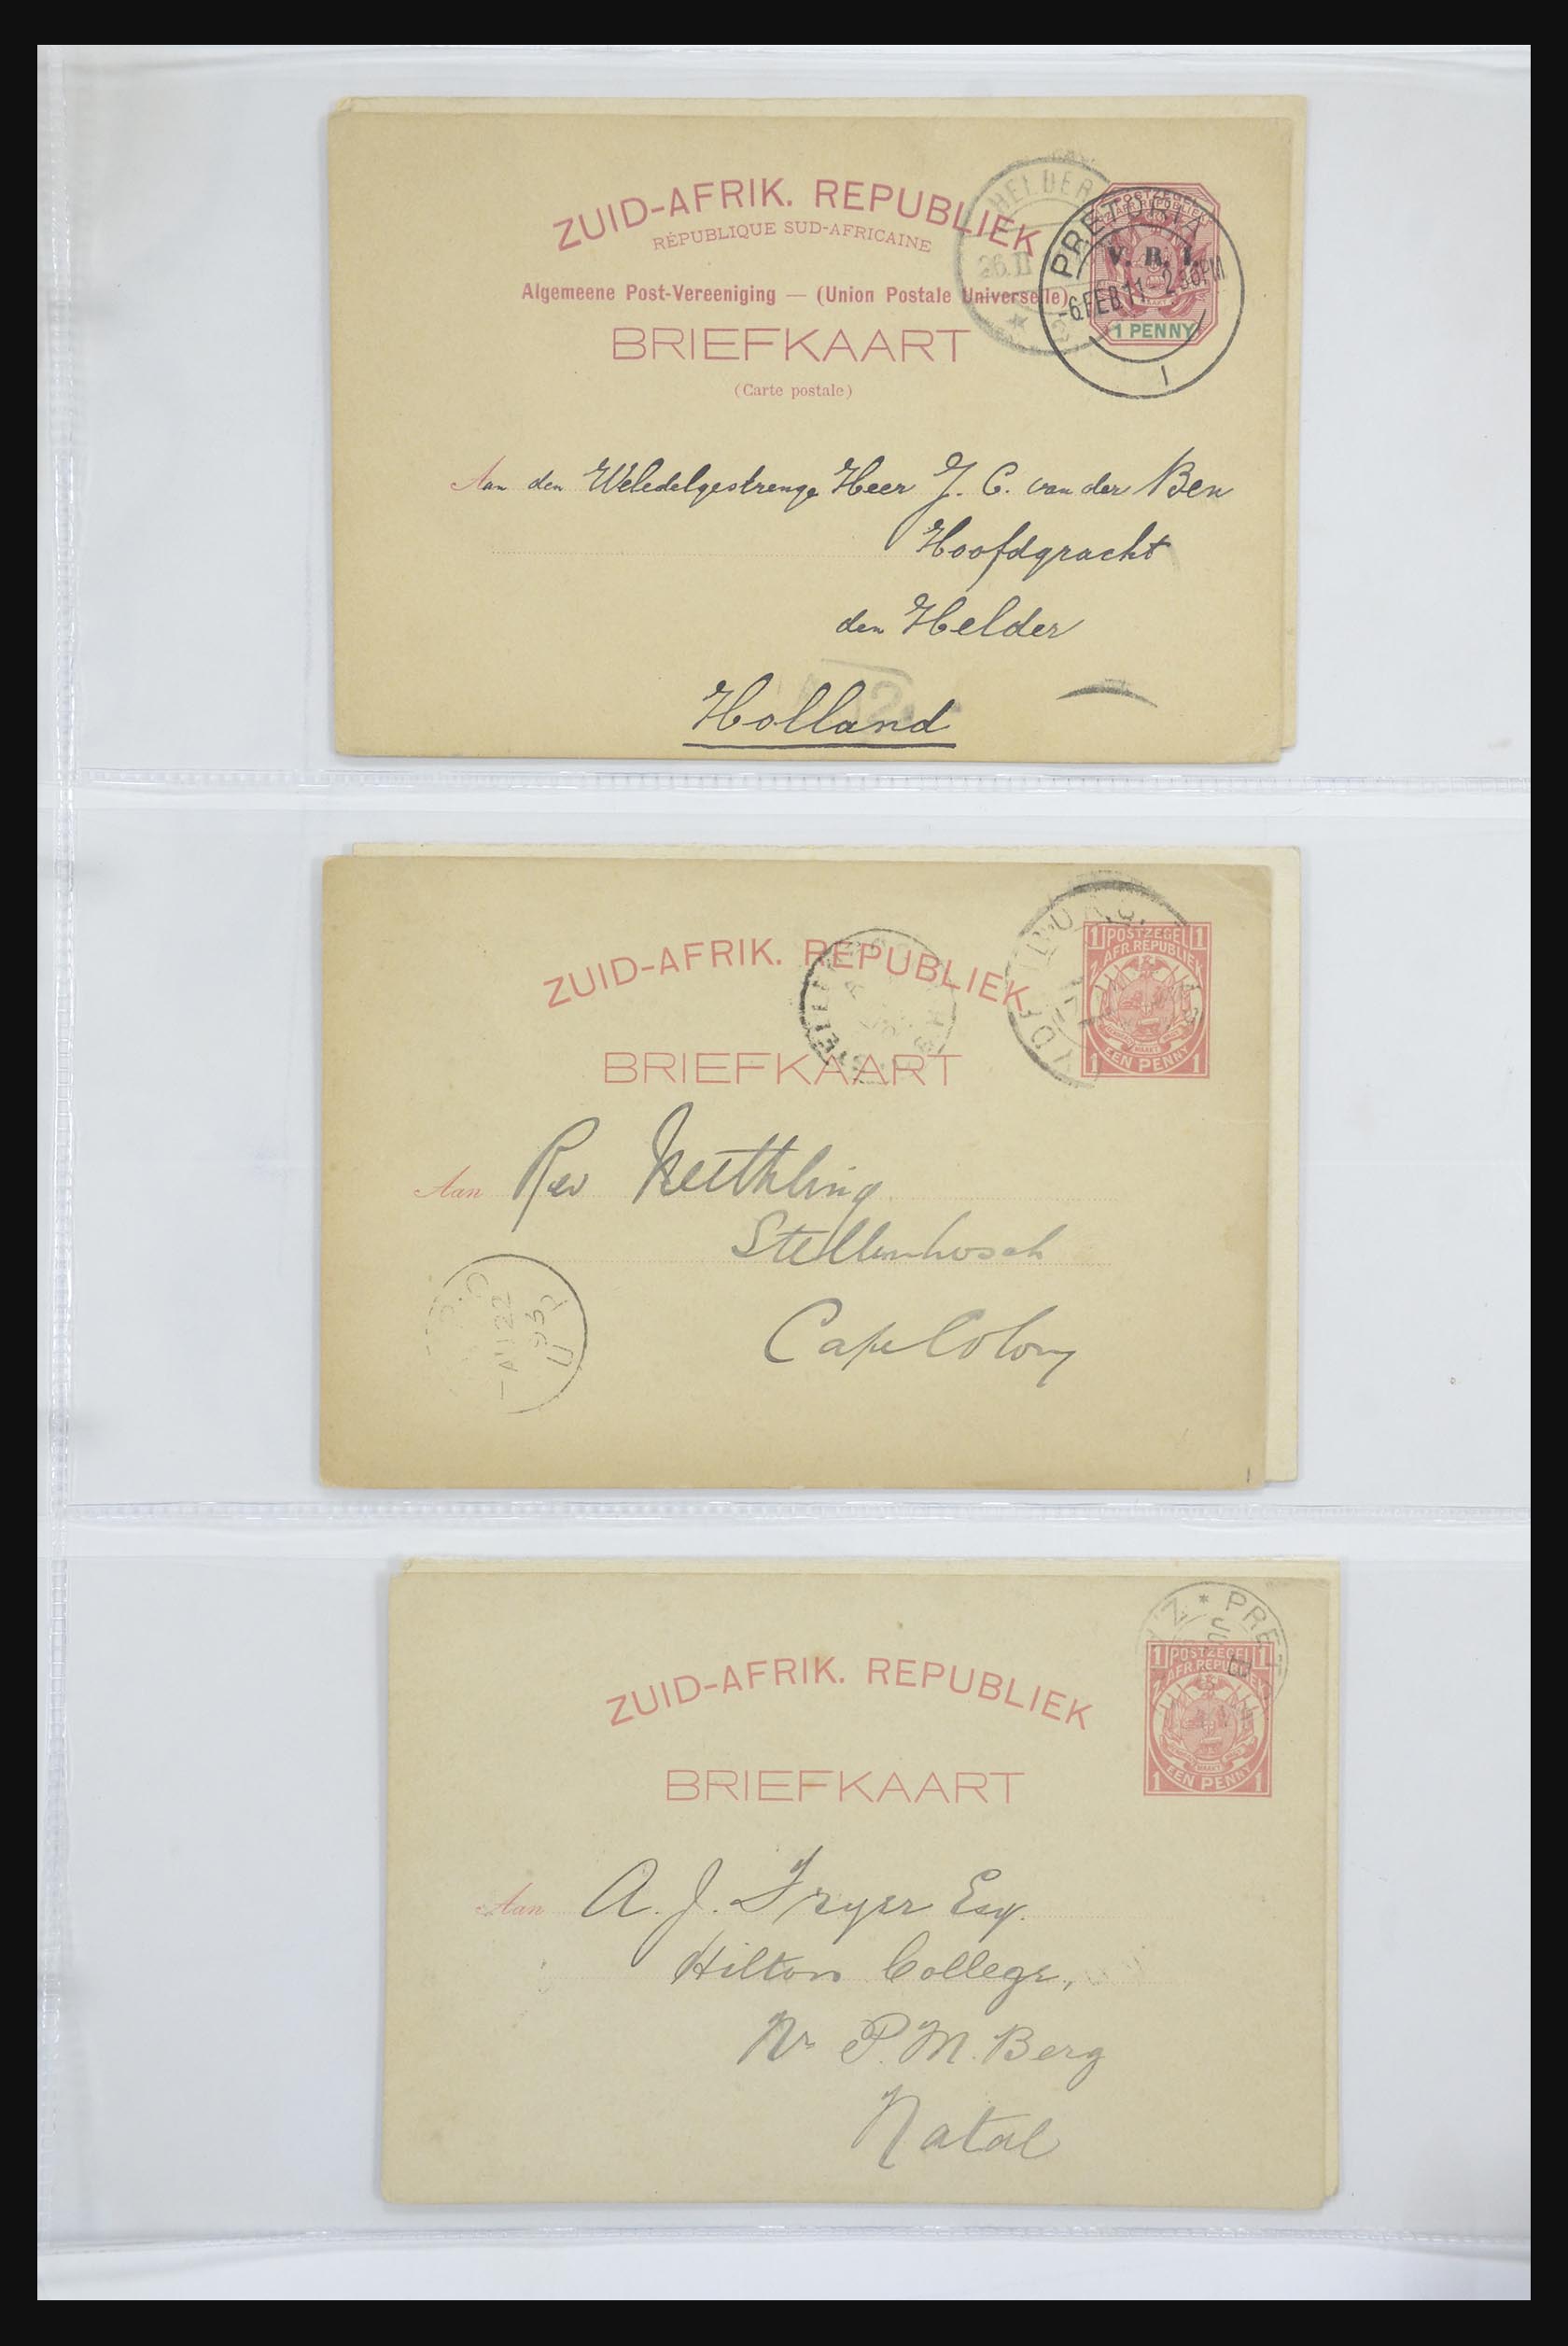 ZUID-AFRIK. REPUBLIEK
RÉPUBLIQUE SUD-AFRICAINE
Algemeene Post-Vereeniging — (Union Postale Universelle)
BRIEFKAART
(Carte postale)
HELDER
26.II
PRETORIA
-6 FEB 11 2.30PM
1
POSTZEGEL
V. R. I.
1 PENNY
Aan den Weledelgestrenge Heer J. C. van der Ben
Hoofdgracht
den Helder
Holland
ZUID-AFRIK. REPUBLIEK
BRIEFKAART
1 POSTZEGEL 1
Z. AFR. REPUBLIEK
1 EEN PENNY 1
Aan Rev Neethling
Stellenbosch
Cape Colony
AU 22
93
ZUID-AFRIK. REPUBLIEK
BRIEFKAART
PRET
1 POSTZEGEL 1
Z. AFR. REPUBLIEK
1 EEN PENNY 1
Aan A. J. Fryer Esq.
Hilton College,
Nr P. M. Berg
Natal